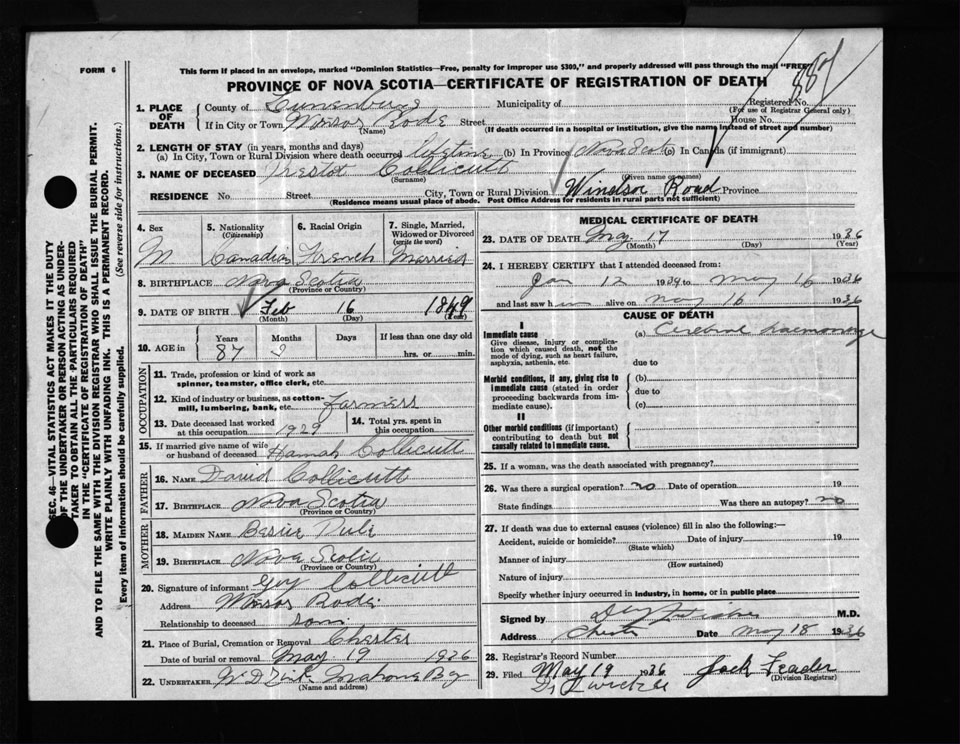 FORM 6
This form if placed in an envelope, marked "Dominion Statistics—Free, penalty for improper use $300," and properly addressed will pass through the mail "FREE"
PROVINCE OF NOVA SCOTIA—CERTIFICATE OF REGISTRATION OF DEATH
1. PLACE OF DEATH
County of Lunenburg
Municipality of
Registered No.
(For use of Registrar General only)
If in City or Town Winsor Rode Street
House No.
(Name)
(If death occurred in a hospital or institution, give the name instead of street and number)
2. LENGTH OF STAY (in years, months and days)
(a) In City, Town or Rural Division where death occurred lifetime (b) In Province Nova Scot (c) In Canada (if immigrant)
3. NAME OF DECEASED Preston Collicutt
(Surname)
(Given name or names)
RESIDENCE No. Street City, Town or Rural Division Windsor Road Province
(Residence means usual place of abode. Post Office Address for residents in rural parts not sufficient)
4. Sex
M
5. Nationality
(Citizenship)
Canadian
6. Racial Origin
French
7. Single, Married, Widowed or Divorced
(write the word)
Married
8. BIRTHPLACE Nova Scotia
(Province or Country)
9. DATE OF BIRTH Feb 16 1849
(Month) (Day) (Year)
10. AGE in
Years 87
Months 3
Days
If less than one day old
hrs. or min.
OCCUPATION
11. Trade, profession or kind of work as spinner, teamster, office clerk, etc.
12. Kind of industry or business, as cotton-mill, lumbering, bank, etc. Farmers
13. Date deceased last worked at this occupation 1929
14. Total yrs. spent in this occupation
15. If married give name of wife or husband of deceased Hannah Collicutt
FATHER
16. NAME David Collicutt
17. BIRTHPLACE Nova Scotia
(Province or Country)
MOTHER
18. MAIDEN NAME
19. BIRTHPLACE Nova Scotia
(Province or Country)
20. Signature of informant Guy Collicutt
Address Winsor Rode
Relationship to deceased son
21. Place of Burial, Cremation or Removal Chester
Date of burial or removal May 19 1936
22. UNDERTAKER
(Name and address)
MEDICAL CERTIFICATE OF DEATH
23. DATE OF DEATH May 17 1936
(Month) (Day) (Year)
24. I HEREBY CERTIFY that I attended deceased from:
Jan 12 to May 16 1936
and last saw him alive on May 16 1936
CAUSE OF DEATH
I
Immediate cause
Give disease, injury or complication which caused death, not the mode of dying, such as heart failure, asphyxia, asthenia, etc.
(a) Cerebral haemorrage
due to
Morbid conditions, if any, giving rise to immediate cause (stated in order proceeding backwards from immediate cause).
(b)
due to
(c)
II
Other morbid conditions (if important) contributing to death but not causally related to immediate cause.
25. If a woman, was the death associated with pregnancy?
26. Was there a surgical operation? no Date of operation 19
State findings Was there an autopsy? no
27. If death was due to external causes (violence) fill in also the following:—
Accident, suicide or homicide? Date of injury 19
(State which)
Manner of injury
(How sustained)
Nature of injury
Specify whether injury occurred in industry, in home, or in public place
Signed by M.D.
Address Chester Date May 18 1936
28. Registrar's Record Number
29. Filed May 19 1936 Jack Leader
(Division Registrar)
SEC. 46—VITAL STATISTICS ACT MAKES IT THE DUTY
OF THE UNDERTAKER OR PERSON ACTING AS UNDER-
TAKER TO OBTAIN ALL THE PARTICULARS REQUIRED
IN THE "CERTIFICATE OF REGISTRATION OF DEATH"
AND TO FILE THE SAME WITH THE DIVISION REGISTRAR WHO SHALL ISSUE THE BURIAL PERMIT.
WRITE PLAINLY WITH UNFADING INK. THIS IS A PERMANENT RECORD.
Every item of information should be carefully supplied. (See reverse side for instructions.)